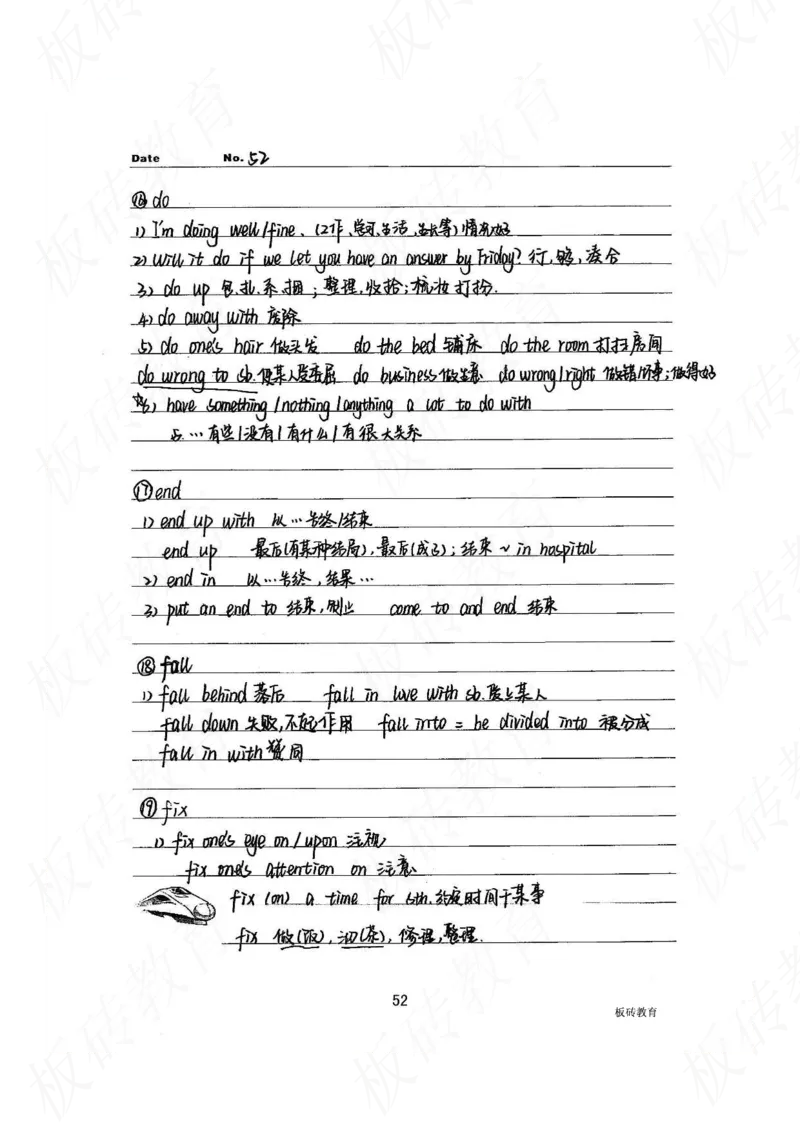 Date No. 52
⑯ do
1) I'm doing well/fine、(工作、学习、生活、成长等)情况好
2) Will it do if we let you have an answer by Friday? 行,够,凑合
3) do up 包.扎.系.捆;整理.收拾;梳妆打扮.
4) do away with 废除
5) do one's hair 做头发 do the bed 铺床 do the room 打扫房间
do wrong to sb.使某人受委屈 do business 做生意 do wrong/right 做错事;做得好
6) have something/nothing/anything a lot to do with
与…有些/没有/有什么/有很大关系
⑰ end
1) end up with 以…告终/结束
end up 最后(有某种结局),最后(成了);结束 ~ in hospital
2) end in 以…告终,结果…
3) put an end to 结束,制止 come to and end 结束
⑱ fall
1) fall behind 落后 fall in love with sb.爱上某人
fall down 失败,不起作用 fall into = be divided into 被分成
fall in with 赞同
⑲ fix
1) fix one's eye on/upon 注视
fix one's attention on 注意
fix (on) a time for sth.约定时间于某事
fix 做(饭),沏(茶),修理,整理.
52
板砖教育